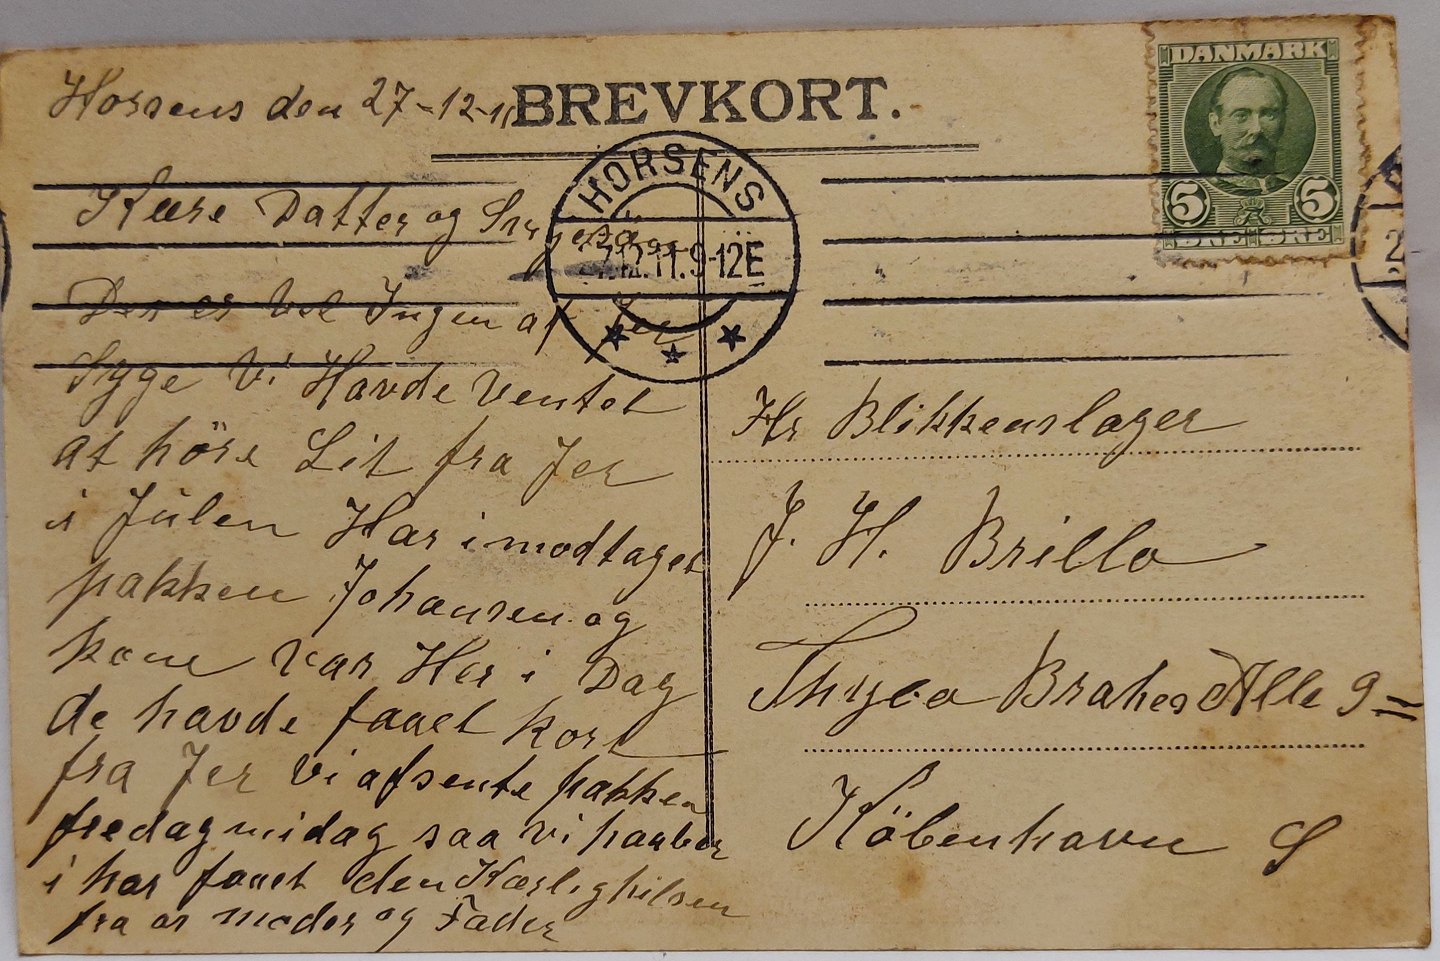 Horsens den 27-12-11
BREVKORT.
DANMARK
5 5
ØRE ØRE
HORSENS
12.11.9-12E
Kære Datter og
Der er vel Ingen af Jer
Syge Vi Havde Ventet
at høre Lit fra Jer
i Julen Har i modtaget
pakken Johansen og
kone var Her i Dag
de havde faaet kort
fra Jer Vi afsente pakken
fredag midag saa Vi haaber
i har faaet den Kærlig hilsen
fra os moder og Fader
Hr Blikkenslager
J. H. Brillo
Thyco Brahes Alle 9
Köbenhavn S